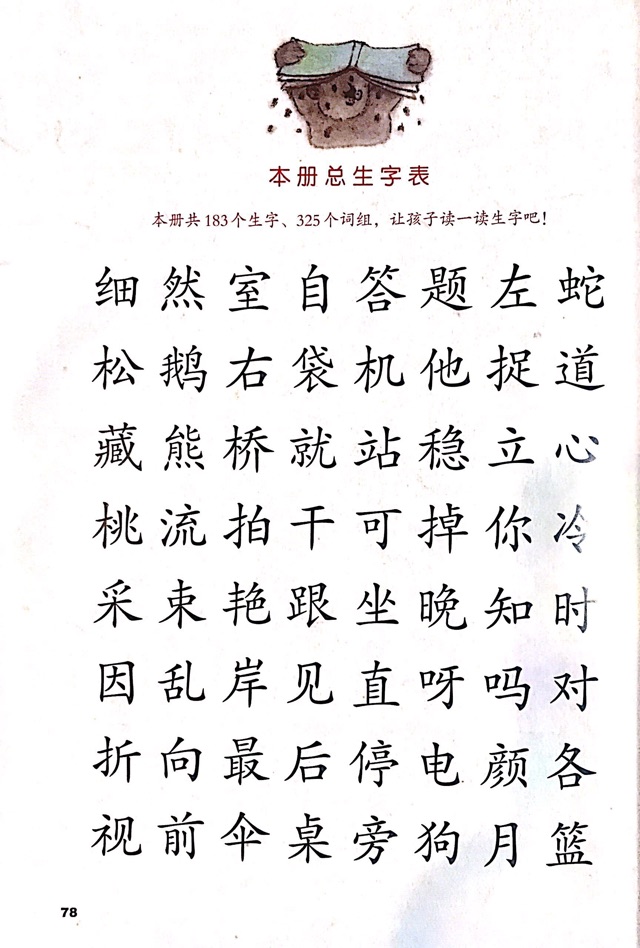 本册总生字表
本册共183个生字、325个词组，让孩子读一读生字吧！
细 然 室 自 答 题 左 蛇
松 鹅 右 袋 机 他 捉 道
藏 熊 桥 就 站 稳 立 心
桃 流 拍 干 可 掉 你 冷
采 束 艳 跟 坐 晚 知 时
因 乱 岸 见 直 呀 吗 对
折 向 最 后 停 电 颜 各
视 前 伞 桌 旁 狗 月 篮
78